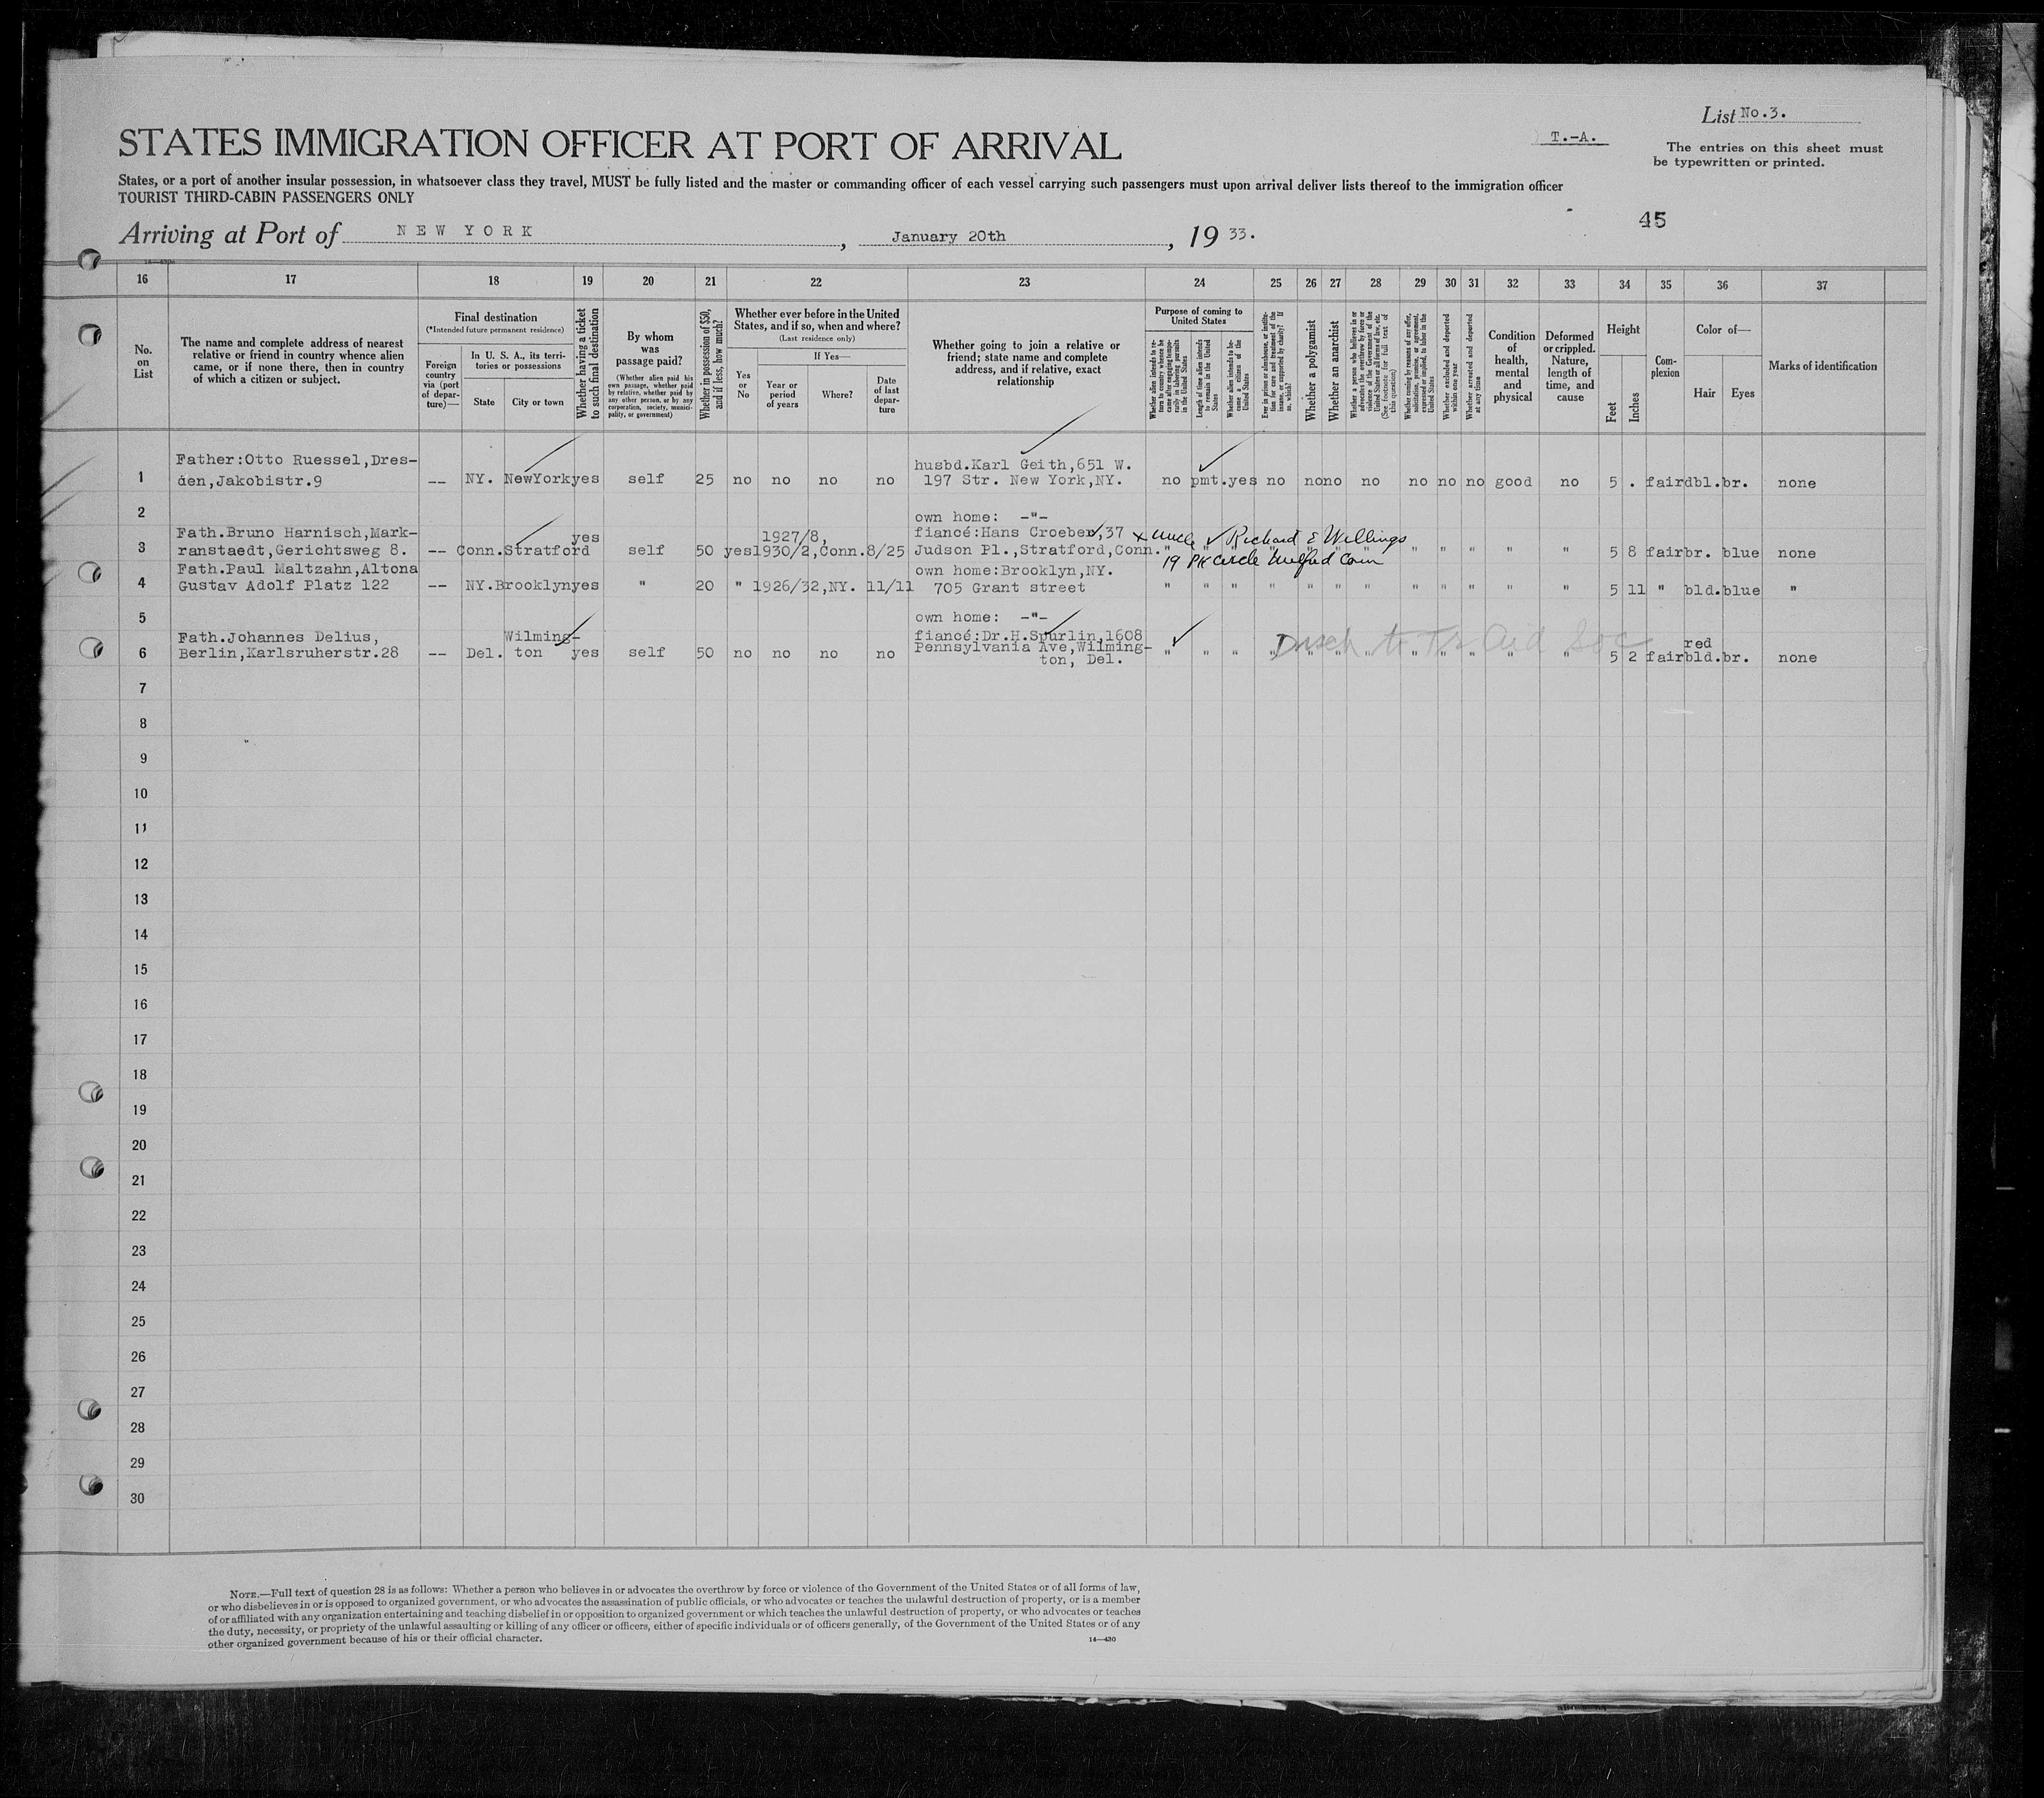 List No.3.
T.-A.
The entries on this sheet must
be typewritten or printed.
STATES IMMIGRATION OFFICER AT PORT OF ARRIVAL
States, or a port of another insular possession, in whatsoever class they travel, MUST be fully listed and the master or commanding officer of each vessel carrying such passengers must upon arrival deliver lists thereof to the immigration officer
TOURIST THIRD-CABIN PASSENGERS ONLY
45
Arriving at Port of NEW YORK, January 20th, 19 33.
16 17 18 19 20 21 22 23 24 25 26 27 28 29 30 31 32 33 34 35 36 37
No.
on
List
The name and complete address of nearest
relative or friend in country whence alien
came, or if none there, then in country
of which a citizen or subject.
Final destination
(*Intended future permanent residence)
Foreign
country
via (port
of depar-
ture)—
In U. S. A., its terri-
tories or possessions
State
City or town
Whether having a ticket
to such final destination
By whom
was
passage paid?
(Whether alien paid his
own passage, whether paid
by relative, whether paid by
any other person, or by any
corporation, society, munici-
pality, or government)
Whether in possession of $50,
and if less, how much?
Whether ever before in the United
States, and if so, when and where?
(Last residence only)
Yes
or
No
If Yes—
Year or
period
of years
Where?
Date
of last
depar-
ture
Whether going to join a relative or
friend; state name and complete
address, and if relative, exact
relationship
Purpose of coming to
United States
Whether alien intends to re-
turn to country whence he
came after engaging tempo-
rarily in laboring pursuits
in the United States
Length of time alien intends
to remain in the United
States
Whether alien intends to be-
come a citizen of the
United States
Ever in prison or almshouse, or institu-
tion for care and treatment of the
insane, or supported by charity? If
so, which?
Whether a polygamist
Whether an anarchist
Whether a person who believes in or
advocates the overthrow by force or
violence of the Government of the
United States or all forms of law, etc.
(See footnote for full text of
this question)
Whether coming by reasons of any offer,
solicitation, promise, or agreement,
expressed or implied, to labor in the
United States
Whether excluded and deported
within one year
Whether arrested and deported
at any time
Condition
of
health,
mental
and
physical
Deformed
or crippled.
Nature,
length of
time, and
cause
Height
Feet
Inches
Com-
plexion
Color of—
Hair
Eyes
Marks of identification
Father:Otto Ruessel,Dres- husbd.Karl Geith,651 W.
1 den,Jakobistr.9 -- NY. NewYork yes self 25 no no no no 197 Str. New York,NY. no pmt. yes no no no no no no no good no 5 . fair dbl. br. none
2 own home: -"-
Fath.Bruno Harnisch,Mark- yes 1927/8, fiancé:Hans Croeber,37 x uncle Richard E Willings
3 ranstaedt,Gerichtsweg 8. -- Conn. Stratford self 50 yes 1930/2,Conn. 8/25 Judson Pl.,Stratford,Conn. " " " " " " " " " " " " 5 8 fair br. blue none
19 Pk Circle Milford Conn
Fath.Paul Maltzahn,Altona own home:Brooklyn,NY.
4 Gustav Adolf Platz 122 -- NY. Brooklyn yes " 20 " 1926/32,NY. 11/11 705 Grant street " " " " " " " " " " " " 5 11 " bld. blue "
5 own home: -"-
Fath.Johannes Delius, Wilming- fiancé:Dr.H.Spurlin,1608
6 Berlin,Karlsruherstr.28 -- Del. ton yes self 50 no no no no Pennsylvania Ave,Wilming-
ton, Del. " " " " " " " " " " " " 5 2 fair red bld. br. none
Disch to Tr Aid Soc
7
8
9
10
11
12
13
14
15
16
17
18
19
20
21
22
23
24
25
26
27
28
29
30
NOTE.—Full text of question 28 is as follows: Whether a person who believes in or advocates the overthrow by force or violence of the Government of the United States or of all forms of law,
or who disbelieves in or is opposed to organized government, or who advocates the assassination of public officials, or who advocates or teaches the unlawful destruction of property, or is a member
of or affiliated with any organization entertaining and teaching disbelief in or opposition to organized government or which teaches the unlawful destruction of property, or who advocates or teaches
the duty, necessity, or propriety of the unlawful assaulting or killing of any officer or officers, either of specific individuals or of officers generally, of the Government of the United States or of any
other organized government because of his or their official character.
14—430